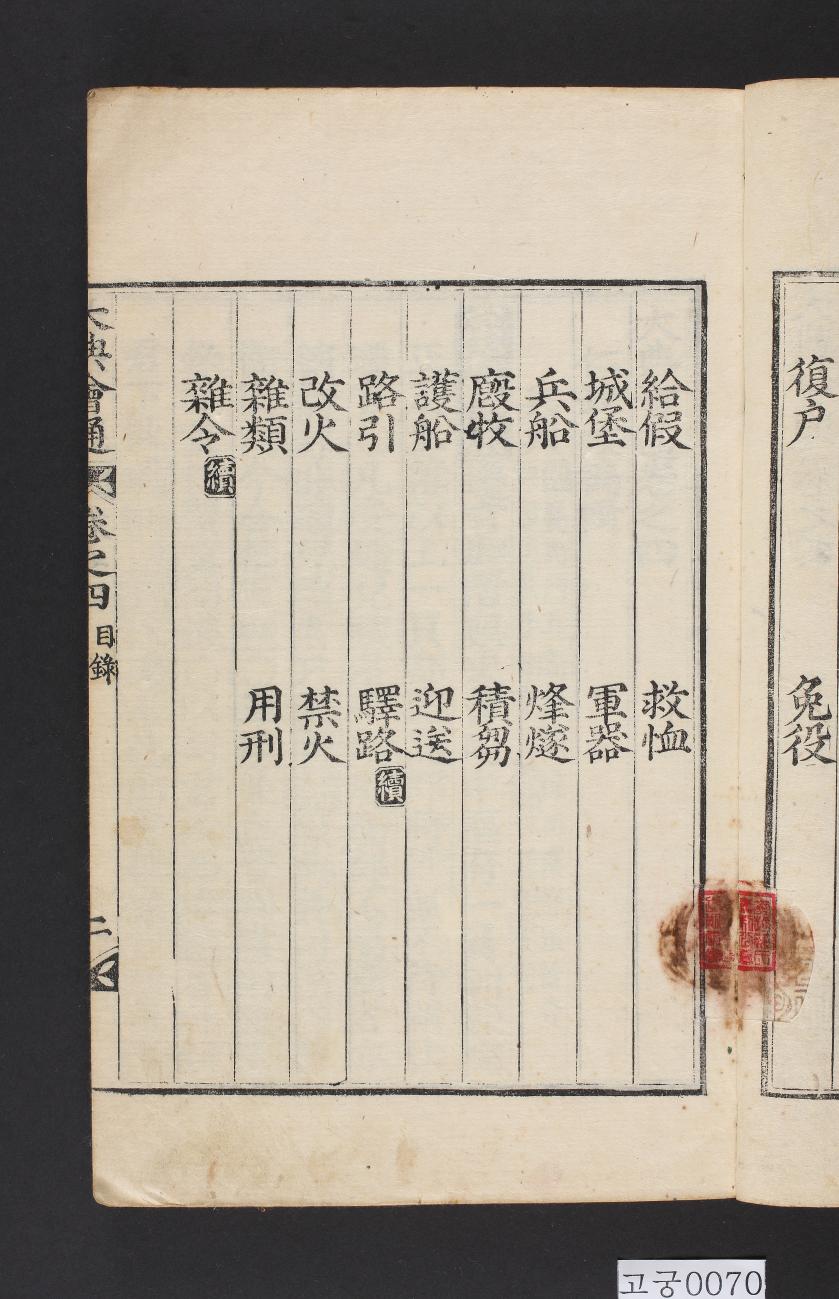 復戶 免役
給假 救恤
城堡 軍器
兵船 烽燧
廏牧 積芻
護船 迎送
路引 驛路 續
改火 禁火
雜類 用刑
雜令 續
大典會通 卷之四 目錄 二
고궁0070